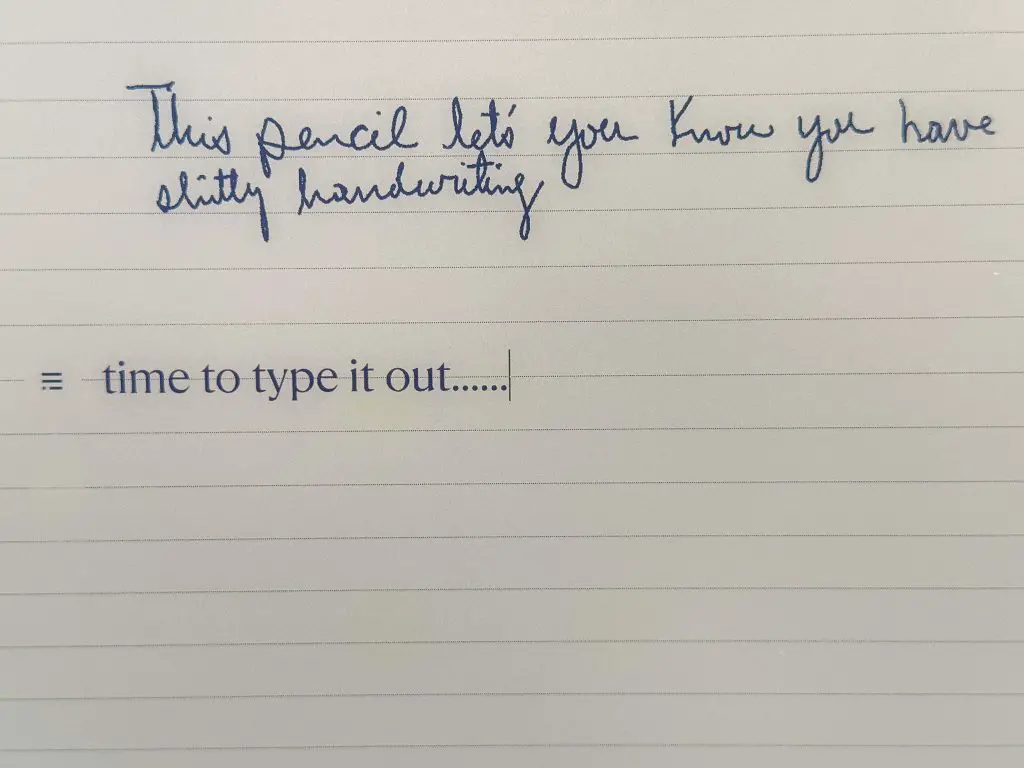 This pencil let's you Know you have
shitty handwriting
time to type it out......